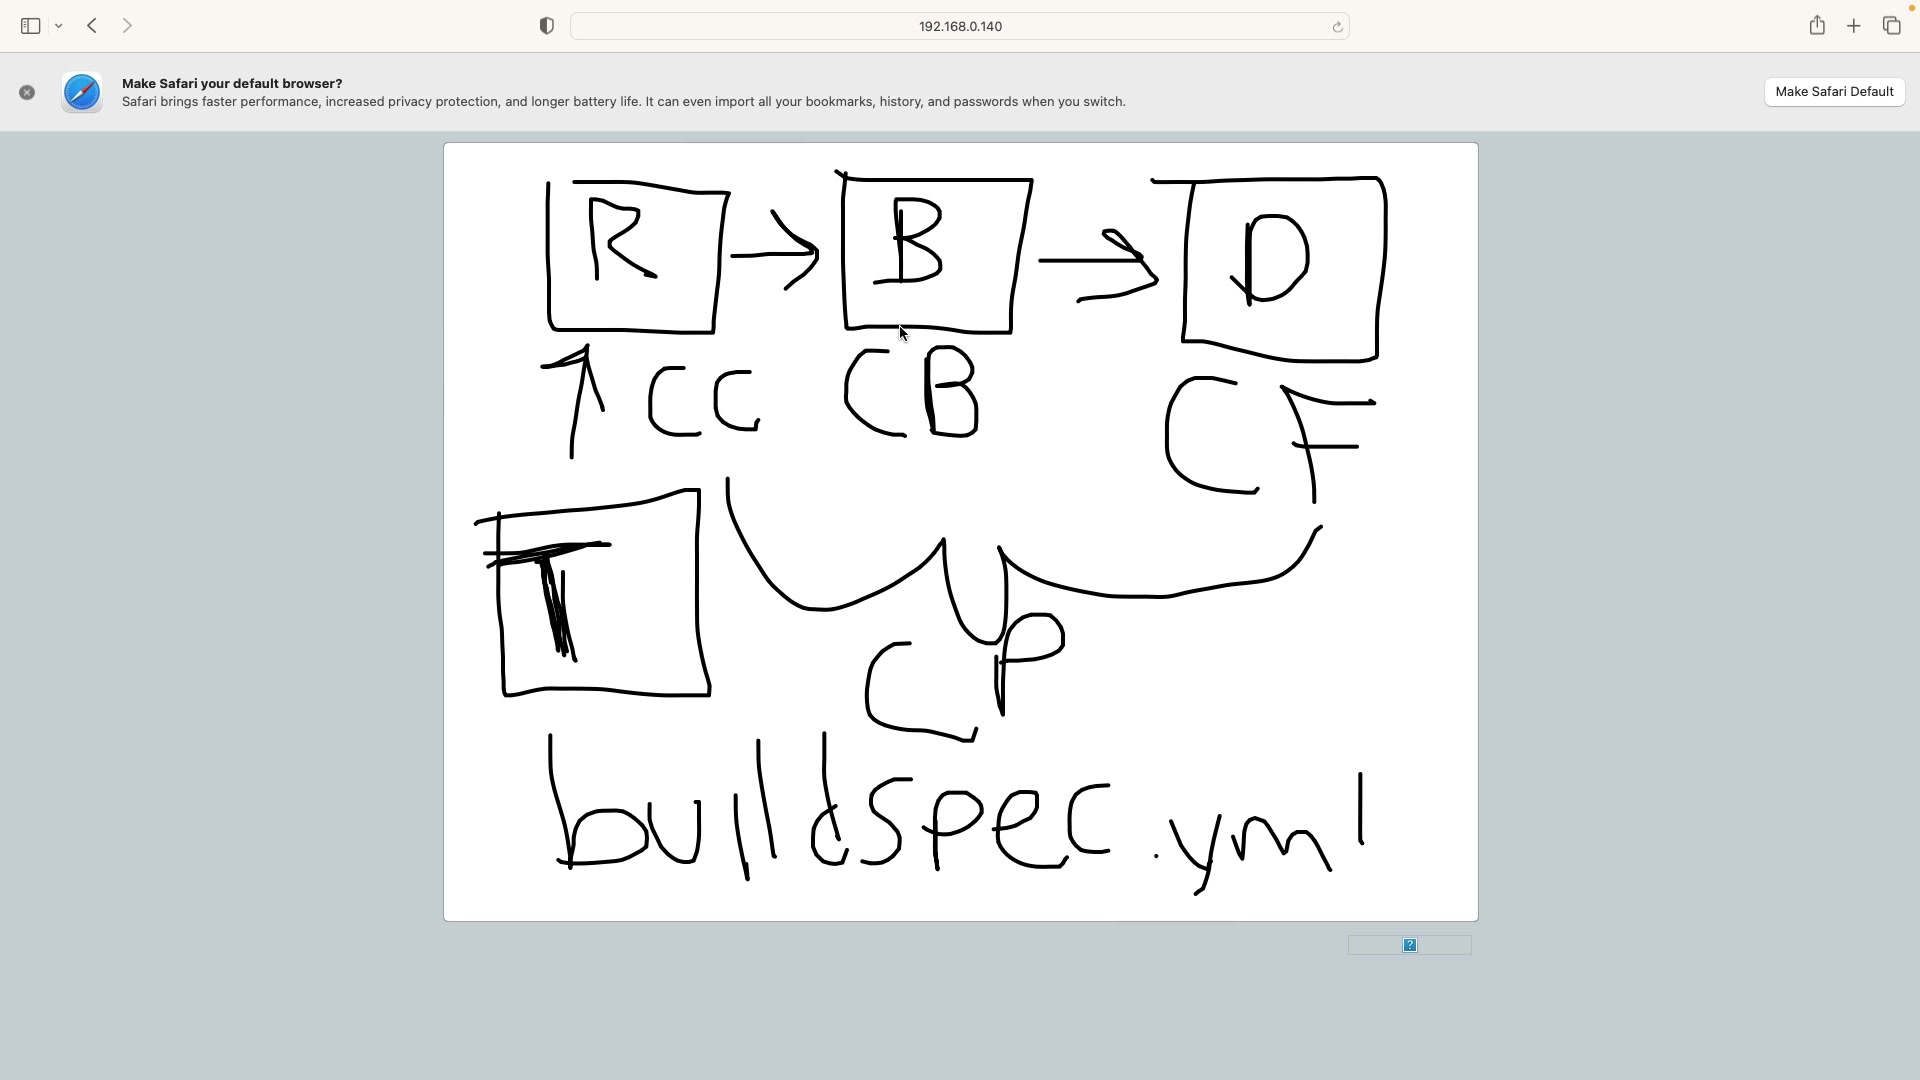 192.168.0.140
Make Safari your default browser?
Safari brings faster performance, increased privacy protection, and longer battery life. It can even import all your bookmarks, history, and passwords when you switch.
Make Safari Default
R B D
CC CB CF
T
CP
buildspec.yml
?